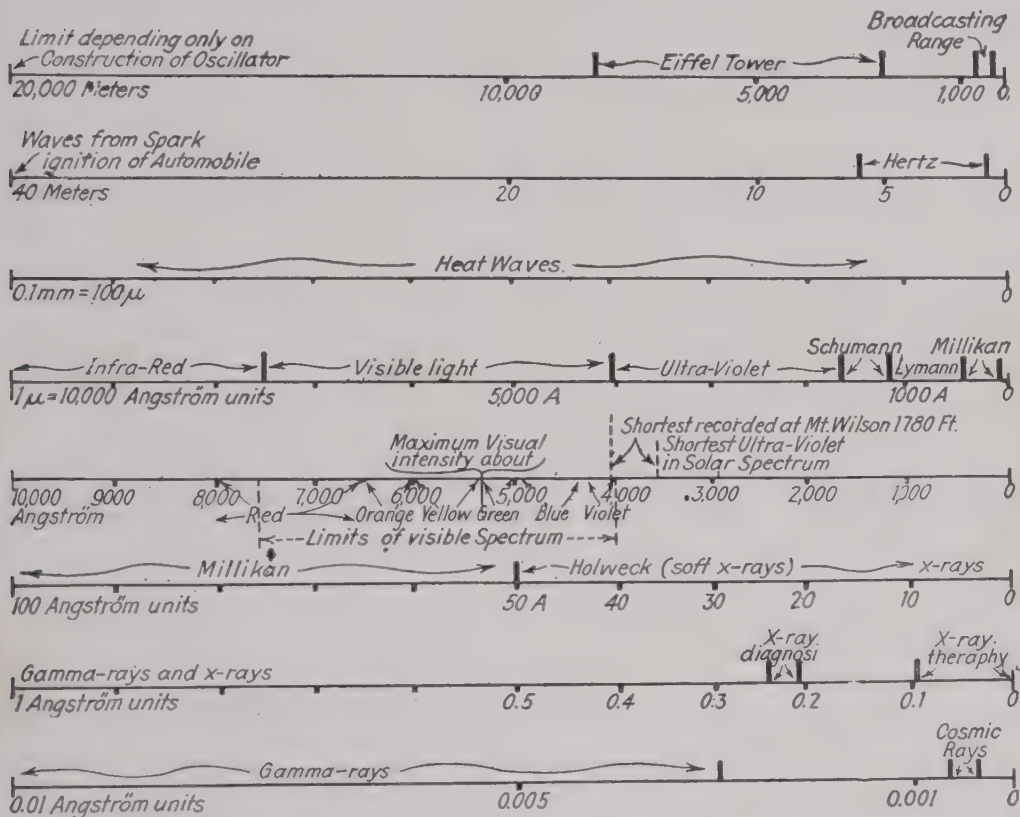 Limit depending only on
Construction of Oscillator
Eiffel Tower
Broadcasting
Range
20,000 Meters
10,000
5,000
1,000
0.
Waves from Spark
ignition of Automobile
Hertz
40 Meters
20
10
5
0
Heat Waves.
0.1mm = 100µ
0
Infra-Red
Visible light
Ultra-Violet
Schumann
Lymann
Millikan
1µ=10,000 Angström units
5,000 A
1000 A
0
Shortest recorded at Mt. Wilson 1780 Ft.
Maximum Visual
intensity about
Shortest Ultra-Violet
in Solar Spectrum
10,000 9000 8,000 7,000 6,000 5,000 4,000 3,000 2,000 1,000 0
Angström
Red Orange Yellow Green Blue Violet
Limits of visible Spectrum
Millikan
Holweck (soft x-rays)
x-rays
100 Angström units
50 A 40 30 20 10 0
Gamma-rays and x-rays
X-ray.
diagnosi
X-ray.
theraphy
1 Angström units
0.5 0.4 0.3 0.2 0.1 0
Gamma-rays
Cosmic
Rays
0.01 Angström units
0.005
0.001
0